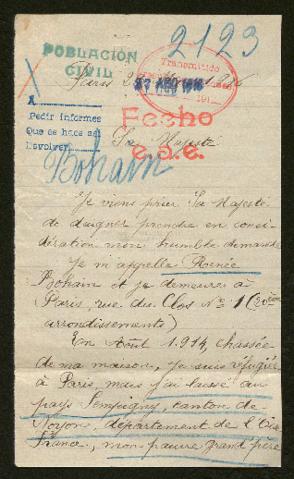 2123
POBLACIÓN
CIVIL
Transmitido
Paris 2
A
Pedir informes
Que se hace así
Devolver
Fecho
e.a.e.
Sa Majesté
Bohain
Je viens prier Sa Majesté
de daigner prendre en consi-
dération mon humble demande
Je m'appelle Renée
Bohain et je demeure à
Paris, rue du Clos No 1 (20ème
arrondissements)
En Août 1914, chassée
de ma maison, je suis réfugiée
à Paris, mais j'ai laissé au
pays Sempigny, canton de
Noyon, département de l'Oise
France, mon pauvre grand'père